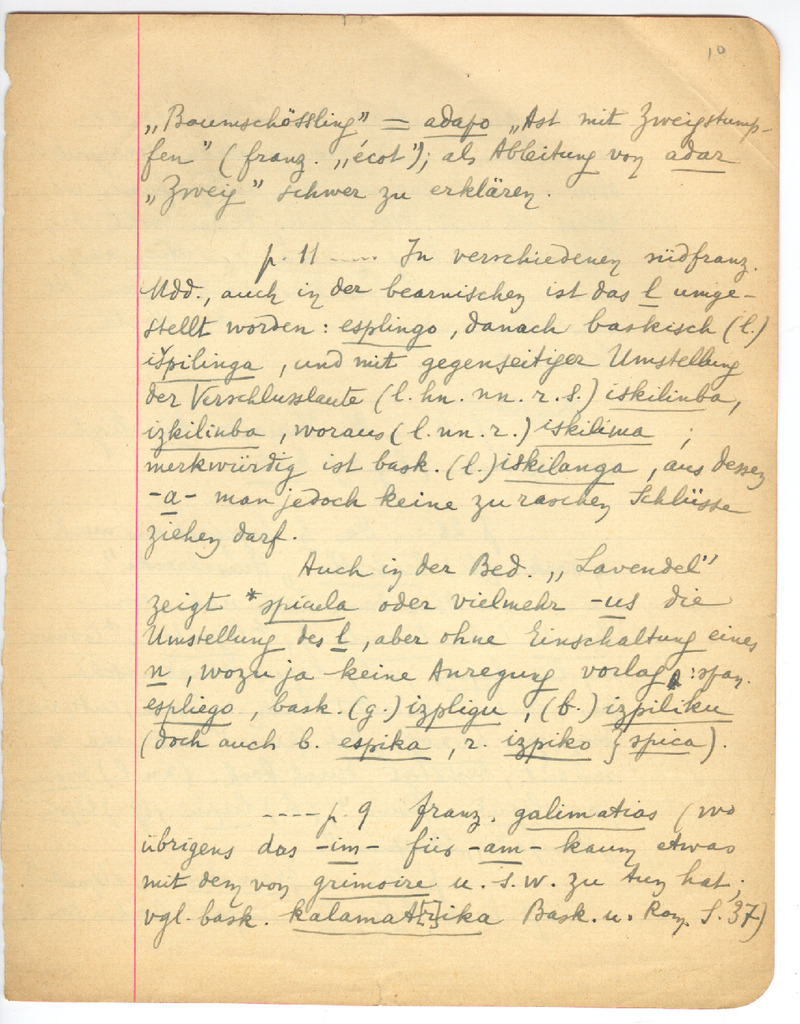 10
„Baumschössling" = adapo „Ast mit Zweigstump-
fen" (franz. „écot"); als Ableitung von adar
„Zweig" schwer zu erklären.
p. 11 ---- In verschiedenen südfranz.
Mdd., auch in der bearnischen ist das l umge-
stellt worden: esplingo, danach baskisch (l.)
išpilinga, und mit gegenseitiger Umstellung
der Verschlusslaute (l. hn. nn. r. s.) iskilinba,
izkilinba, woraus (l. nn. r.) iskilima;
merkwürdig ist bask. (l.) iskilanga, aus dessen
-a- man jedoch keine zu raschen Schlüsse
ziehen darf.
Auch in der Bed. „Lavendel"
zeigt *spicula oder vielmehr -us die
Umstellung des l, aber ohne Einschaltung eines
n, wozu ja keine Anregung vorlag: span.
espliego, bask. (g.) izpligu, (b.) izpiliku
(doch auch b. espika, r. izpiko { spica).
---- p. 9 franz. galimatias (wo
übrigens das -im- für -am- kaum etwas
mit dem von grimoire u. s. w. zu tun hat;
vgl. bask. kalamat[r]ika Bask. u. Rom. S. 37)